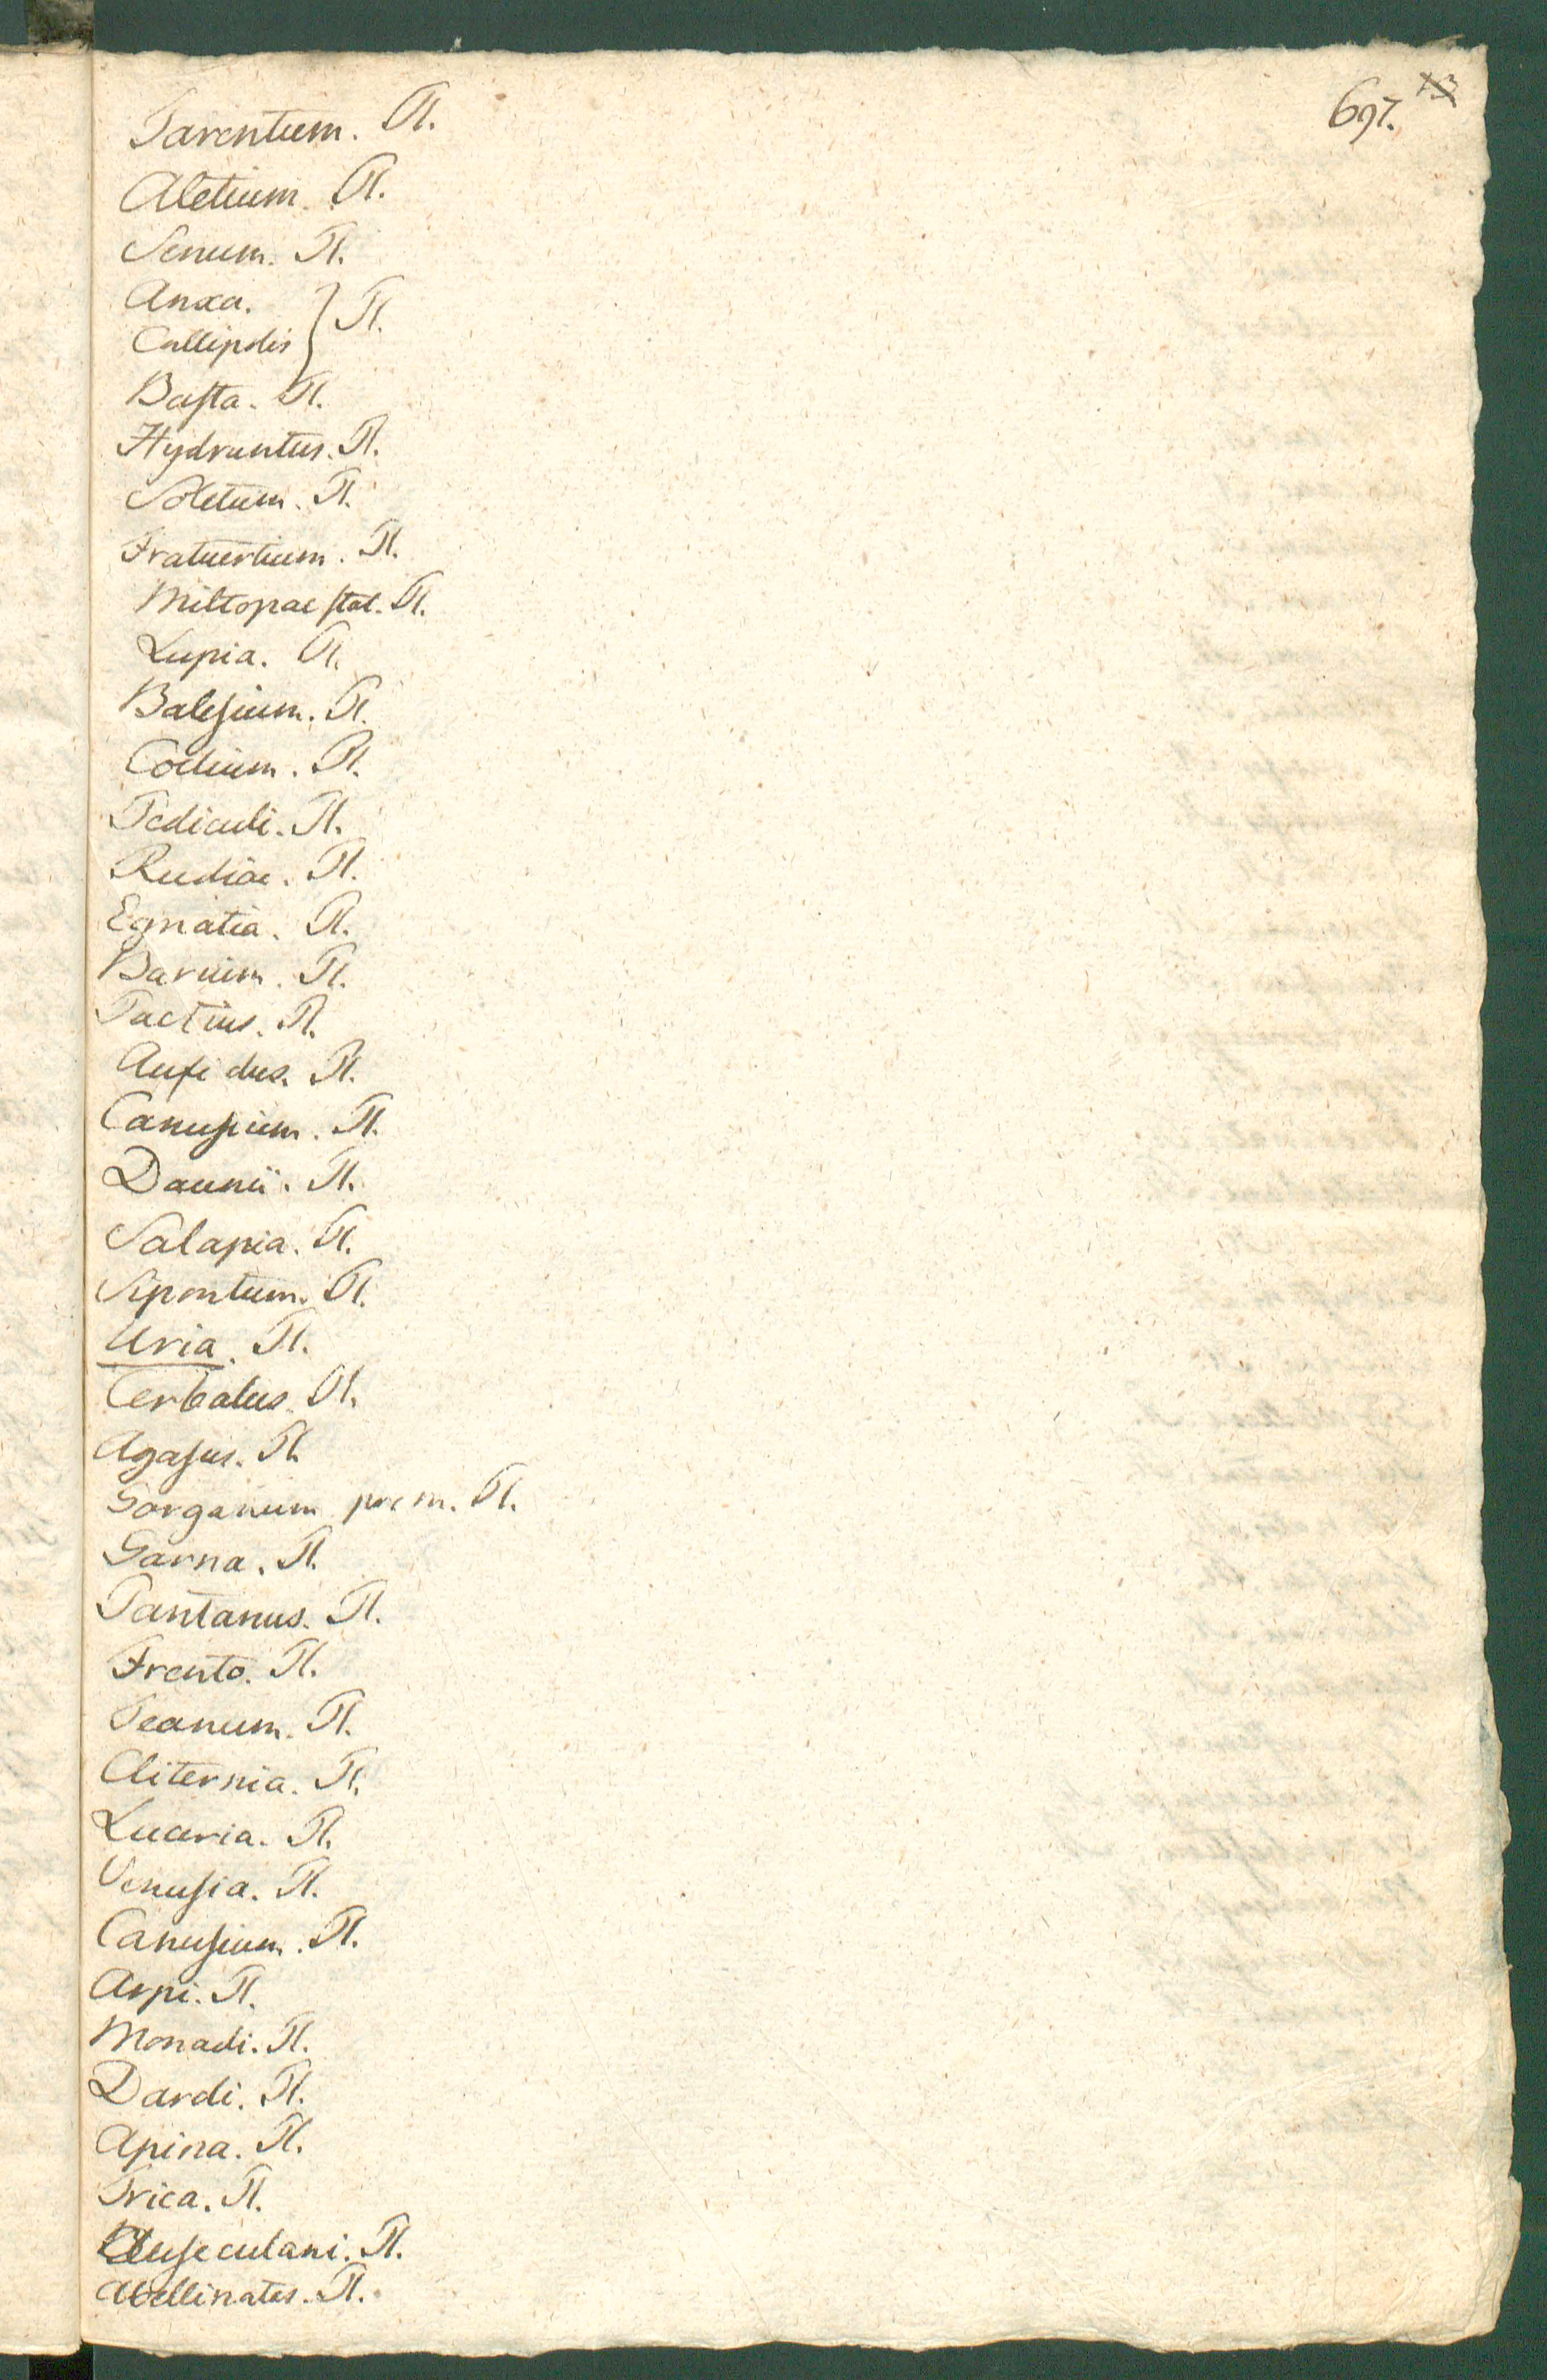 697.
Tarentum. Pl.
Aletium. Pl.
Senum. Pl.
Anxa.
Callipolis } Pl.
Basta. Pl.
Hydruntus. Pl.
Soletum. Pl.
Fratuertium. Pl.
Miltopae stat. Pl.
Lupia. Pl.
Balesium. Pl.
Coelium. Pl.
Pediculi. Pl.
Rudiae. Pl.
Egnatia. Pl.
Barium. Pl.
Pactius. Pl.
Aufidus. Pl.
Canusium. Pl.
Daunii. Pl.
Salapia. Pl.
Sipontum. Pl.
Uria. Pl.
Cerbalus. Pl.
Agasus. Pl.
Gorganum prom. Pl.
Garna. Pl.
Pantanus. Pl.
Frento. Pl.
Teanum. Pl.
Cliternia. Pl.
Luceria. Pl.
Venusia. Pl.
Canusium. Pl.
Arpi. Pl.
Monadi. Pl.
Dardi. Pl.
Apina. Pl.
Trica. Pl.
Auseculani. Pl.
Abellinates. Pl.